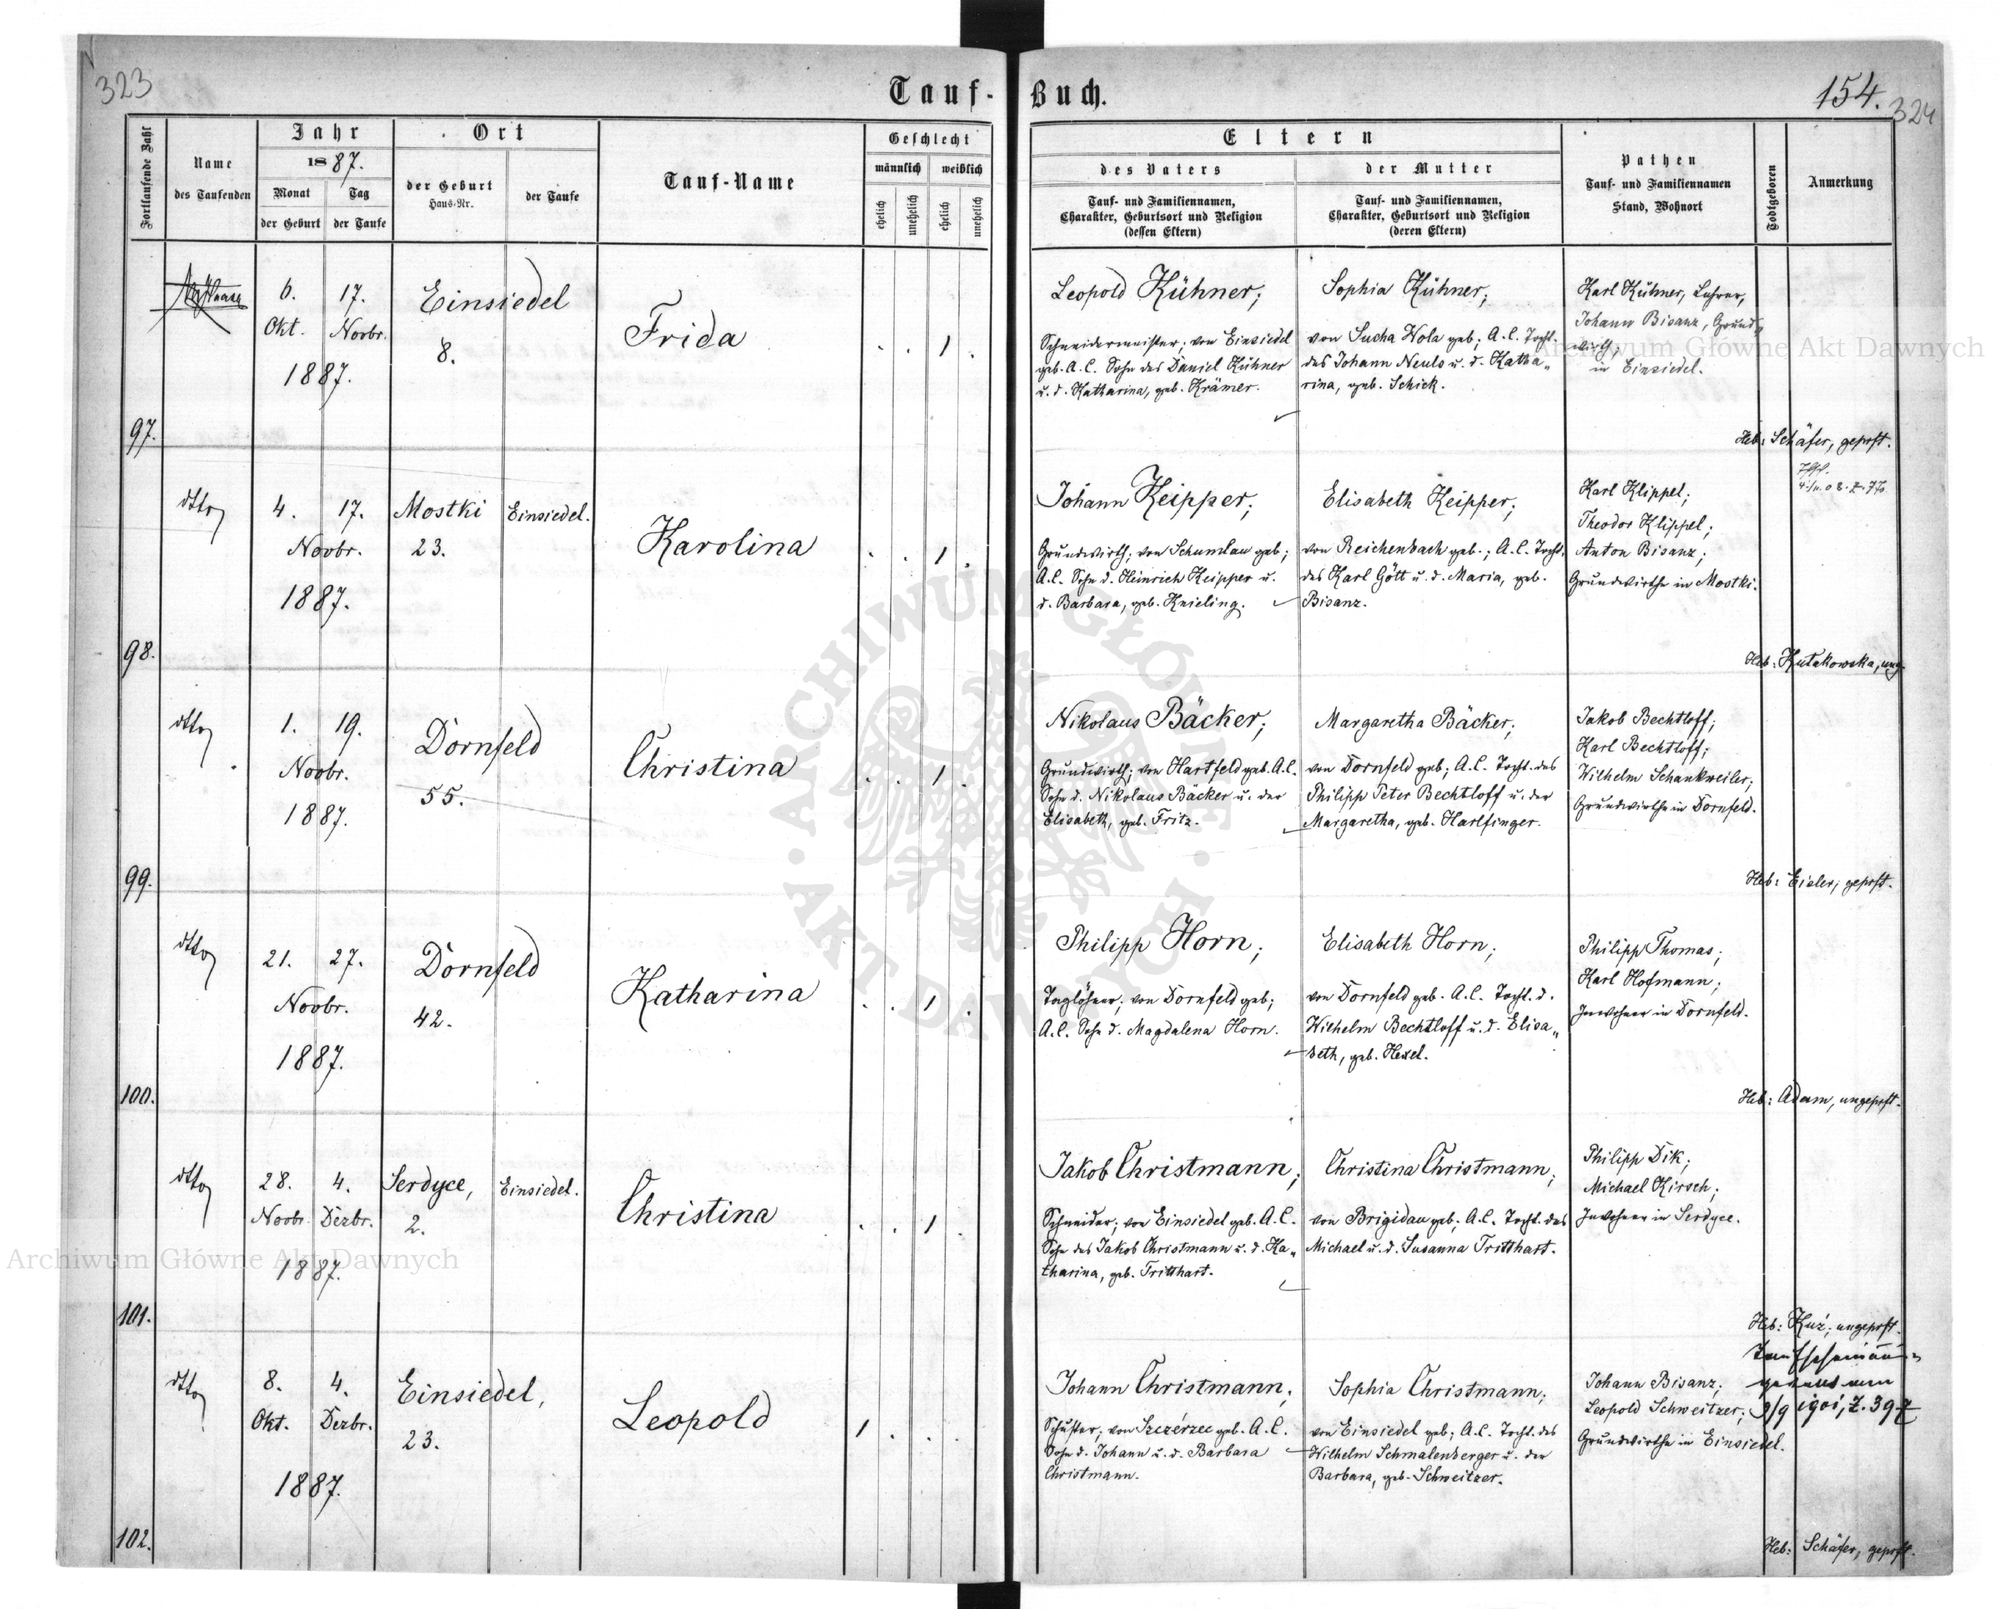 323
Tauf-Buch.
154.
324
Fortlaufende Zahl
Name
des Taufenden
Jahr
1887.
Monat
der Geburt
Tag
der Taufe
Ort
der Geburt
Haus-Nr.
der Taufe
Tauf-Name
Geschlecht
männlich
weiblich
ehelich
unehelich
ehelich
unehelich
Eltern
des Vaters
Tauf- und Familiennamen,
Charakter, Geburtsort und Religion
(dessen Eltern)
der Mutter
Tauf- und Familiennamen,
Charakter, Geburtsort und Religion
(deren Eltern)
Pathen
Tauf- und Familiennamen
Stand, Wohnort
Todtgeboren
Anmerkung
97.
6. 17.
Okt. Novbr.
1887.
Einsiedel
8.
Frida
1
Leopold Kühner;
Schneidermeister; von Einsiedel
geb. A.C. Sohn des Daniel Kühner
u. d. Katharina, geb. Krämer.
Sophia Kühner;
von Sucha Wola geb; A.C. Tocht.
des Johann Neuls u. d. Katha„
rina, geb. Schick.
Karl Kühner, Lehrer,
Johann Bisanz, Grund„
wirth;
in Einsiedel.
Heb: Schäfer, geprft.
98.
dtto
4. 17.
Novbr.
1887.
Mostki
23.
Einsiedel.
Karolina
1
Johann Keipper;
Grundwirth; von Schumlau geb;
A.C. Sohn d. Heinrich Keipper u.
d. Barbara, geb. Knieling.
Elisabeth Keipper;
von Reichenbach geb.; A.C. Tocht.
des Karl Gött u. d. Maria, geb.
Bisanz.
Karl Klippel;
Theodor Klippel;
Anton Bisanz;
Grundwirthe in Mostki.
Heb: Kutakowska, ung.
99.
dtto
1. 19.
Novbr.
1887.
Dornfeld
55.
Christina
1
Nikolaus Bäcker;
Grundwirth; von Hartfeld geb. A.C.
Sohn d. Nikolaus Bäcker u. der
Elisabeth, geb. Fritz.
Margaretha Bäcker;
von Dornfeld geb; A.C. Tocht. des
Philipp Peter Bechtloff u. der
Margaretha, geb. Harlfinger.
Jakob Bechtloff;
Karl Bechtloff;
Wilhelm Schankweiler;
Grundwirthe in Dornfeld.
Heb: Eisler; geprft.
100.
dtto
21. 27.
Novbr.
1887.
Dornfeld
42.
Katharina
1
Philipp Horn;
Taglöhner; von Dornfeld geb;
A.C. Sohn d. Magdalena Horn.
Elisabeth Horn;
von Dornfeld geb. A.C. Tocht. d.
Wilhelm Bechtloff u. d. Elisa„
beth, geb. Hexel.
Philipp Thomas;
Karl Hofmann;
Inwohner in Dornfeld.
Heb: Adam, ungeprft.
101.
dtto
28. 4.
Novbr. Dezbr.
1887.
Serdyce,
2.
Einsiedel.
Christina
1
Jakob Christmann;
Schneider; von Einsiedel geb. A.C.
Sohn des Jakob Christmann u. d. Ka„
tharina, geb. Tritthart.
Christina Christmann;
von Brigidau geb; A.C. Tocht. des
Michael u. d. Susanna Tritthart.
Philipp Dik;
Michael Kirsch;
Inwohner in Serdyce.
Heb: Kuź; ungeprft.
102.
dtto
8. 4.
Okt. Dezbr.
1887.
Einsiedel,
23.
Leopold
1
Johann Christmann;
Schuster; von Szczérzec geb. A.C.
Sohn d. Johann u. d. Barbara
Christmann.
Sophia Christmann;
von Einsiedel geb; A.C. Tocht. des
Wilhelm Schmalenberger u. der
Barbara, geb. Schweitzer.
Johann Bisanz;
Leopold Schweitzer;
Grundwirthe in Einsiedel.
Heb: Schäfer, geprft.
Archiwum Główne Akt Dawnych
Archiwum Główne Akt Dawnych
ARCHIWUM GŁÓWNE
AKT DAWNYCH